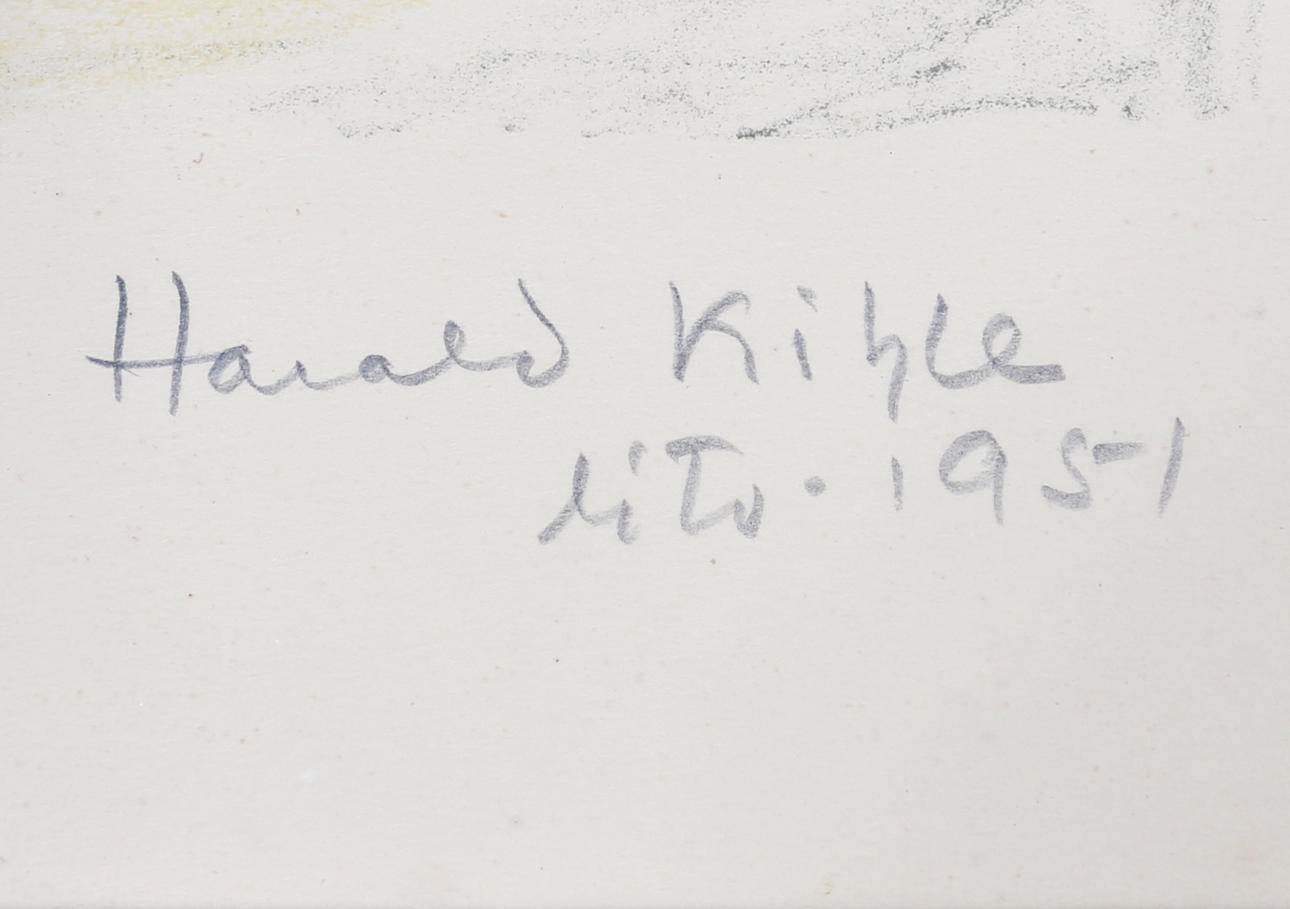 Harald Kihle
lito. 1951